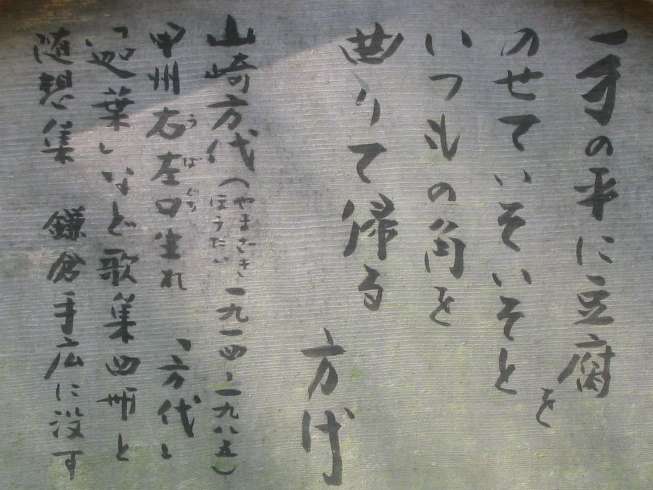 手の平に豆腐を
のせていそいそと
いつもの角を
曲りて帰る
方代
山崎方代(やまざきほうだい 一九一四-一九八五)
甲州右左口生れ 「方代」
うばぐち
「迦葉」など歌集四冊と
随想集 鎌倉手広に没す